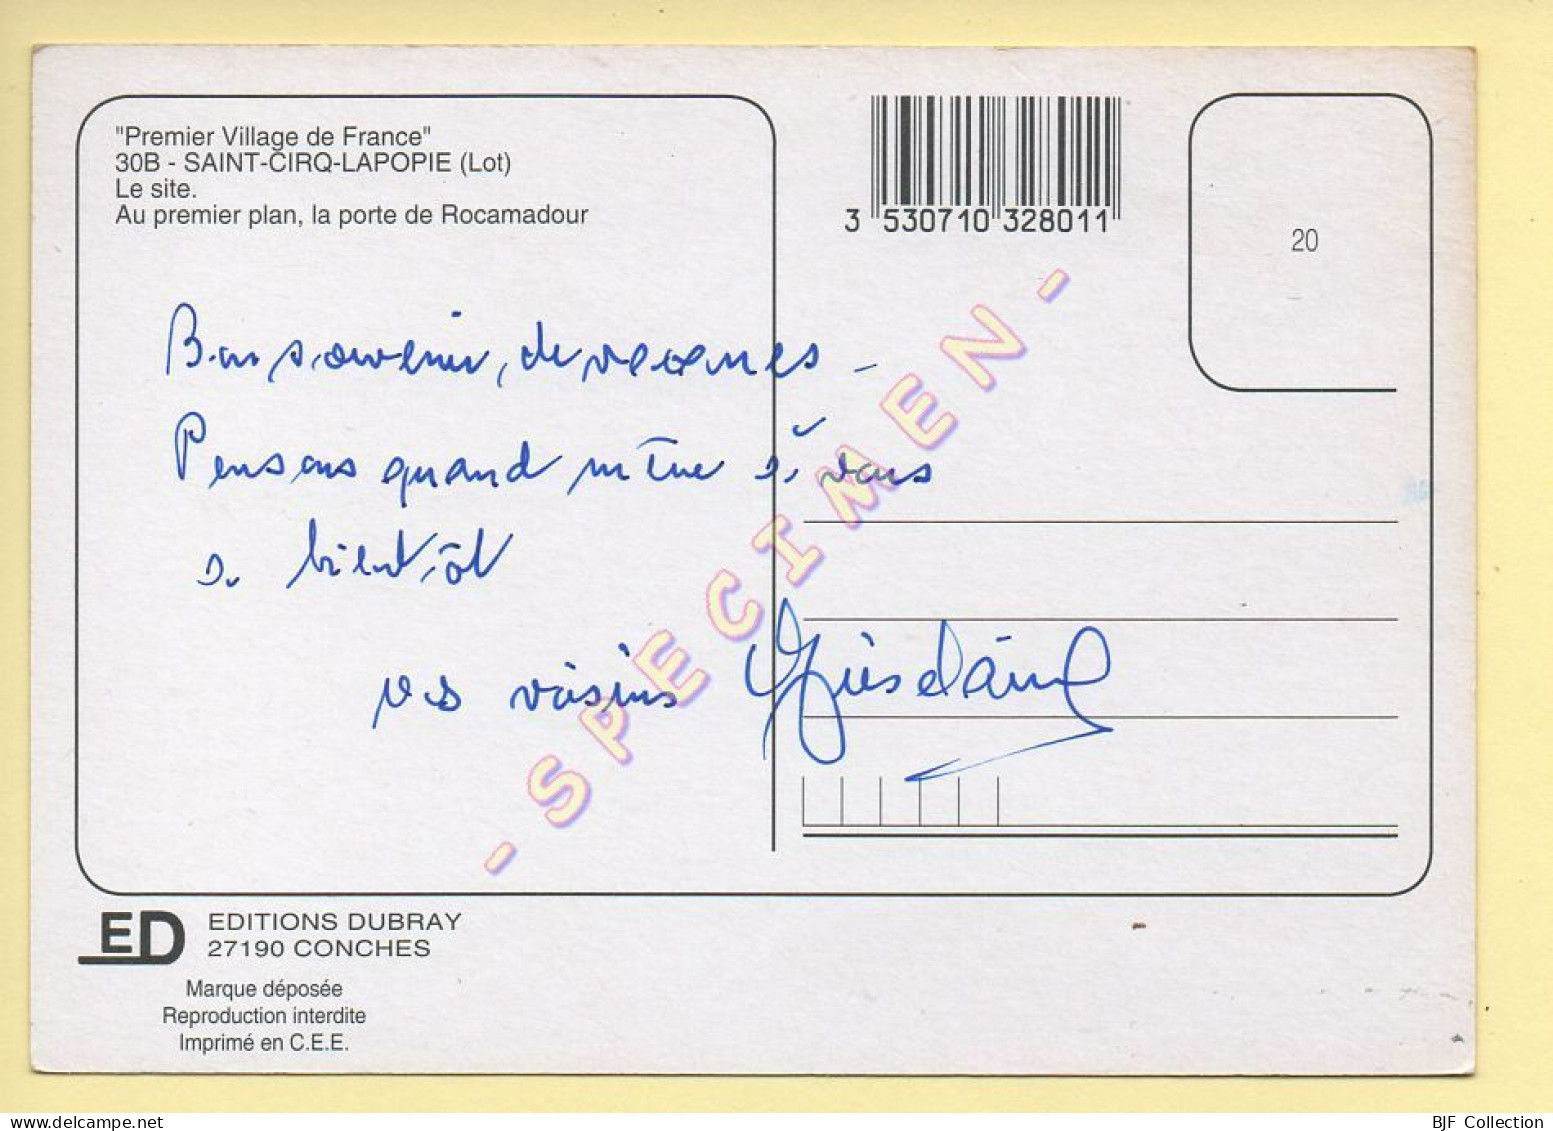 "Premier Village de France"
30B - SAINT-CIRQ-LAPOPIE (Lot)
Le site.
Au premier plan, la porte de Rocamadour
3 530710 328011
20
Bon souvenir, de vacances -
Pensons quand même à vous
à bientôt
vos voisins
- SPECIMEN -
ED
EDITIONS DUBRAY
27190 CONCHES
Marque déposée
Reproduction interdite
Imprimé en C.E.E.
BJF Collection